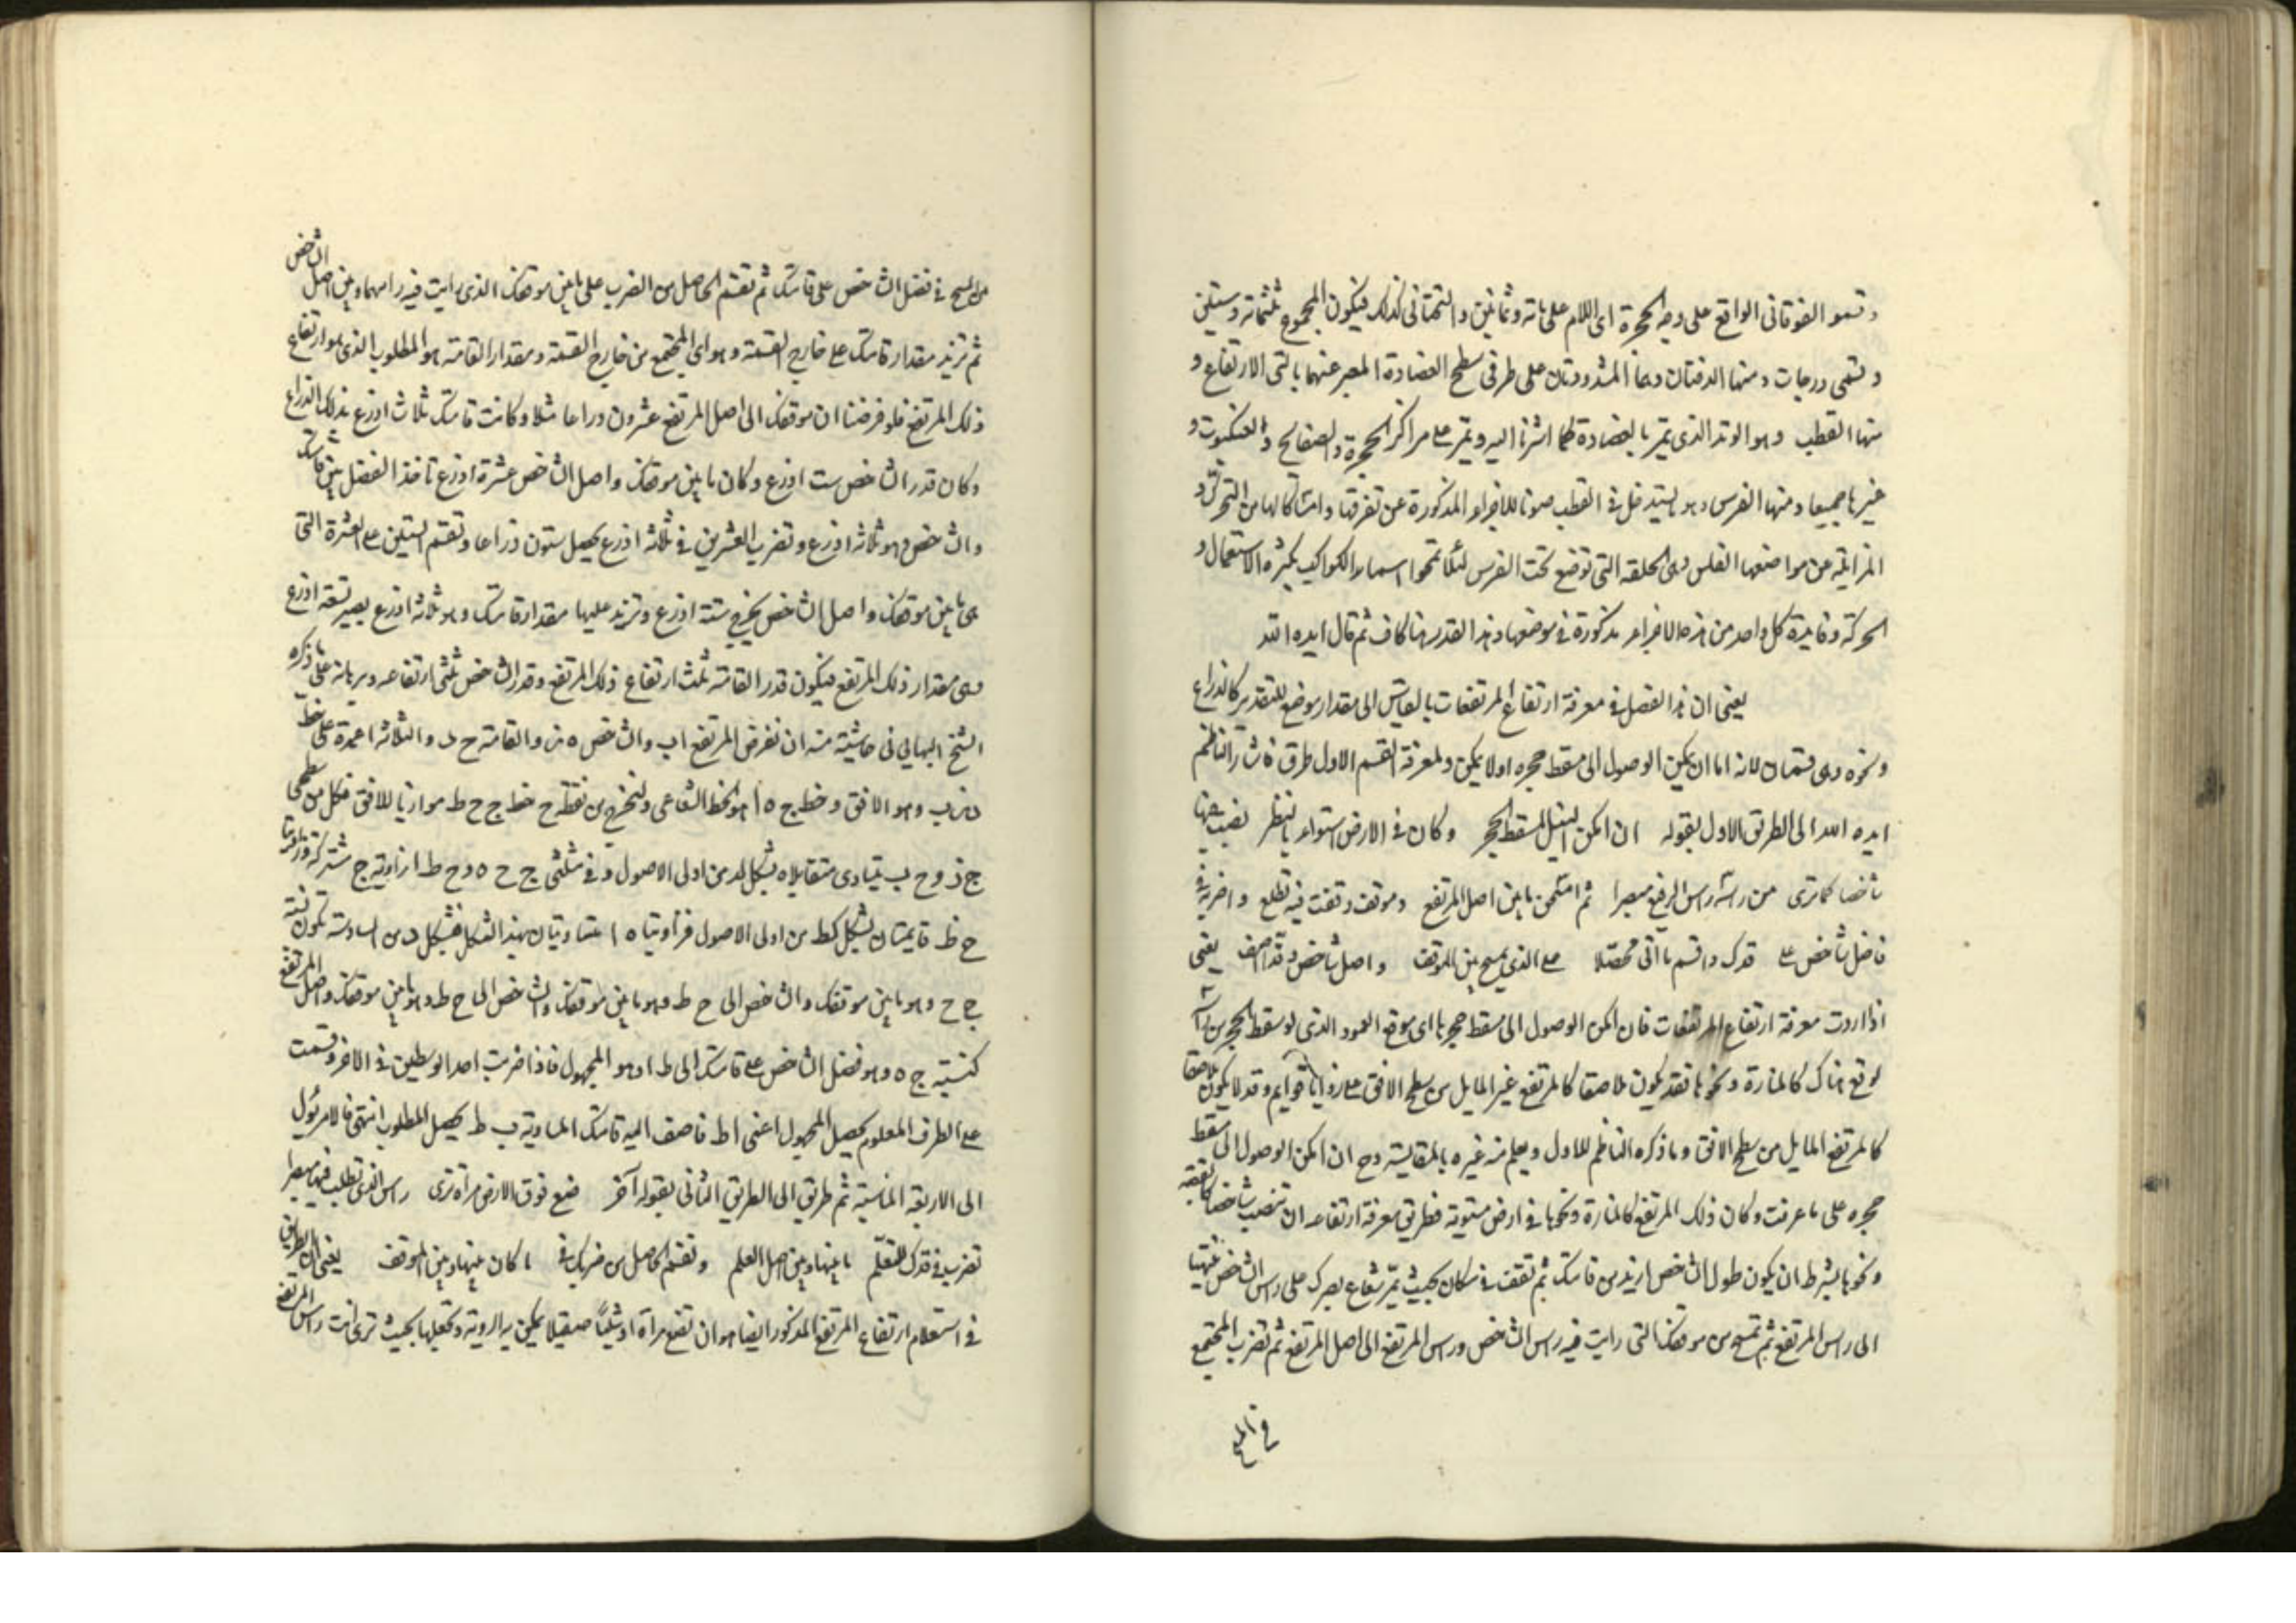 وقسموا الفوقاني الواقع على وجه الحجرة اى اللام على مائة وثمانين والتحتاني كذلك فيكون المجموع ثلثمائة وستين
وتسمى درجات ومنها الدفتان وهما المشدودتان على طرفى سطح العضادة المعبر عنهما بالتى الارتفاع و
منها القطب وهو الوتد الذى يمر بالعضادة كما اشرنا اليه ويمر على مراكز الحجرة والصفايح والعنكبوت و
غيرها جميعا ومنها الفرس وهو يدخل فى القطب صونا للاجزاء المذكورة عن تفرقتها وامساكا لها من التحرك و
المزايلة عن مواضعها الفلس وهى الحلقه التى توضع تحت الفرس لئلا تمحوا اسماء الكواكب بكثرة الاستعمال و
الحركة وفايدة كل واحد من هذه الاجزاء مذكورة فى موضعها وهذا القدر هنا كاف ثم قال ايده الله
يعنى ان هذا الفصل فى معرفة ارتفاع المرتفعات بالقياس الى مقدار موضع للتقدير كالذراع
ونحوه وهى قسمان لانه اما ان يمكن الوصول الى مسقط حجره اولا يمكن ولمعرفة القسم الاول طرق فاشار الناظم
ايده الله الى الطريق الاول بقوله ان امكن النيل لمسقط الحجر وكان فى الارض استواء بالنظر نصبت هنا
شاخصا كما ترى من راسه راس الرفيع مبصرا ثم امسحن ما بين اصل المرتفع وموقف وقفت فيه تطلع واضربه فى
فاضل شاخص على قدك واقسم ما اتى محصلا على الذى يمسح بين الموقف واصل شاخص وقدا اضف يعنى
اذا اردت معرفة ارتفاع المرتفعات فان امكن الوصول الى مسقط حجرها اى موقع العمود الذى لو سقط الحجر من راسه
لوقع هناك كالمنارة ونحوها فقد يكون ملاصقا كالمرتفع غير المايل من سطح الافق على زوايا قوايم وقد لا يكون ملاصقا
كالمرتفع المايل من سطح الافق وما ذكره الناظم للاول ويعلم منه غيره بالمقايسة وح ان امكن الوصول الى مسقط
حجره على ما عرفت وكان ذلك المرتفع كالمنارة ونحوها فى ارض مستوية فطريق معرفة ارتفاعه ان تنصب شاخصا كالقصبة
ونحوها بشرط ان يكون طول الشاخص ازيد من قامتك ثم تقف فى مكان بحيث يمر شعاع بصرك على راس الشاخص منتهيا
الى راس المرتفع ثم تمسح من موقفك التى رايت فيه راس الشاخص وراس المرتفع الى اصل المرتفع ثم تضرب المجتمع
من المسح فى فضل الشاخص على قامتك ثم تقسم الحاصل من الضرب على ما بين موقفك الذى رايت فيه راسهما وبين اصل الشاخص
ثم تزيد مقدار قامتك على خارج القسمة وهو اى المجتمع من خارج القسمة ومقدار القامة هو المطلوب الذى هو ارتفاع
ذلك المرتفع فلو فرضنا ان موقفك الى اصل المرتفع عشرون ذراعا مثلا وكانت قامتك ثلاث اذرع بذلك الذراع
وكان قدر الشاخص ست اذرع وكان ما بين موقفك واصل الشاخص عشرة اذرع تاخذ الفضل بين قامتك
والشاخص وهو ثلاثة اذرع وتضرب العشرين فى ثلثة اذرع يحصل ستون ذراعا وتقسم الستين على العشرة التى
هى ما بين موقفك واصل الشاخص يخرج ستة اذرع وتزيد عليها مقدار قامتك وهو ثلاثة اذرع يصير تسعة اذرع
وهى مقدار ذلك المرتفع فيكون قدر القامة ثلث ارتفاع ذلك المرتفع وقدر الشاخص ثلثى ارتفاعه وبرهانه على ما ذكره
الشيخ البهايى فى حاشيته منه ان نفرض المرتفع اب والشاخص ه ز والقامة ح د والثلاثة اعمدة على خط
د ز ب وهو الافق وخط ج ه ا هو الخط الشعاعى ولنخرج من نقطة ح خط ج ح ط موازيا للافق فكل من سطحى
ج ز و ح ب يتساوى متقابلاه بشكل لد من اولى الاصول وفى مثلثى ج ح ه و ج ط ا زاوية ج مشتركة وزاويتا
ح ط قايمتان بشكل كط من اولى الاصول فزاويتا ه ا متساويتان بهذا الشكل فبشكل د من السادسة تكون نسبة
ج ح وهو ما بين موقفك والشاخص الى ج ط وهو ما بين موقفك والشاخص الى ح ط وهو ما بين موقفك واصل المرتفع
كنسبة ج ه وهو فضل الشاخص على قامتك الى ط ا وهو المجهول فاذا ضربت احد الوسطين فى الاخر وقسمت
على الطرف المعلوم يحصل المجهول اعنى اط فاضف اليه قامتك المساوية ب ط يحصل المطلوب انتهى فالامر يؤل
الى الاربعة المتناسبة ثم طريق الى الطريق الثانى بقوله آخر ضع فوق الارض مرآة ترى راس الذى تطلب فيها مبصرا
تضرب فى قدك للتعلم ما بينها وبين اصل العلم وتقسم الحاصل من ضربك فى ما كان بينها وبين الموقف يعنى ان الطريق
فى استعلام ارتفاع المرتفع المذكور ايضا هو ان تضع مرآة او شيئا صيقليا يمكن به الروية وتجعلها بحيث ترى انت راس المرتفع